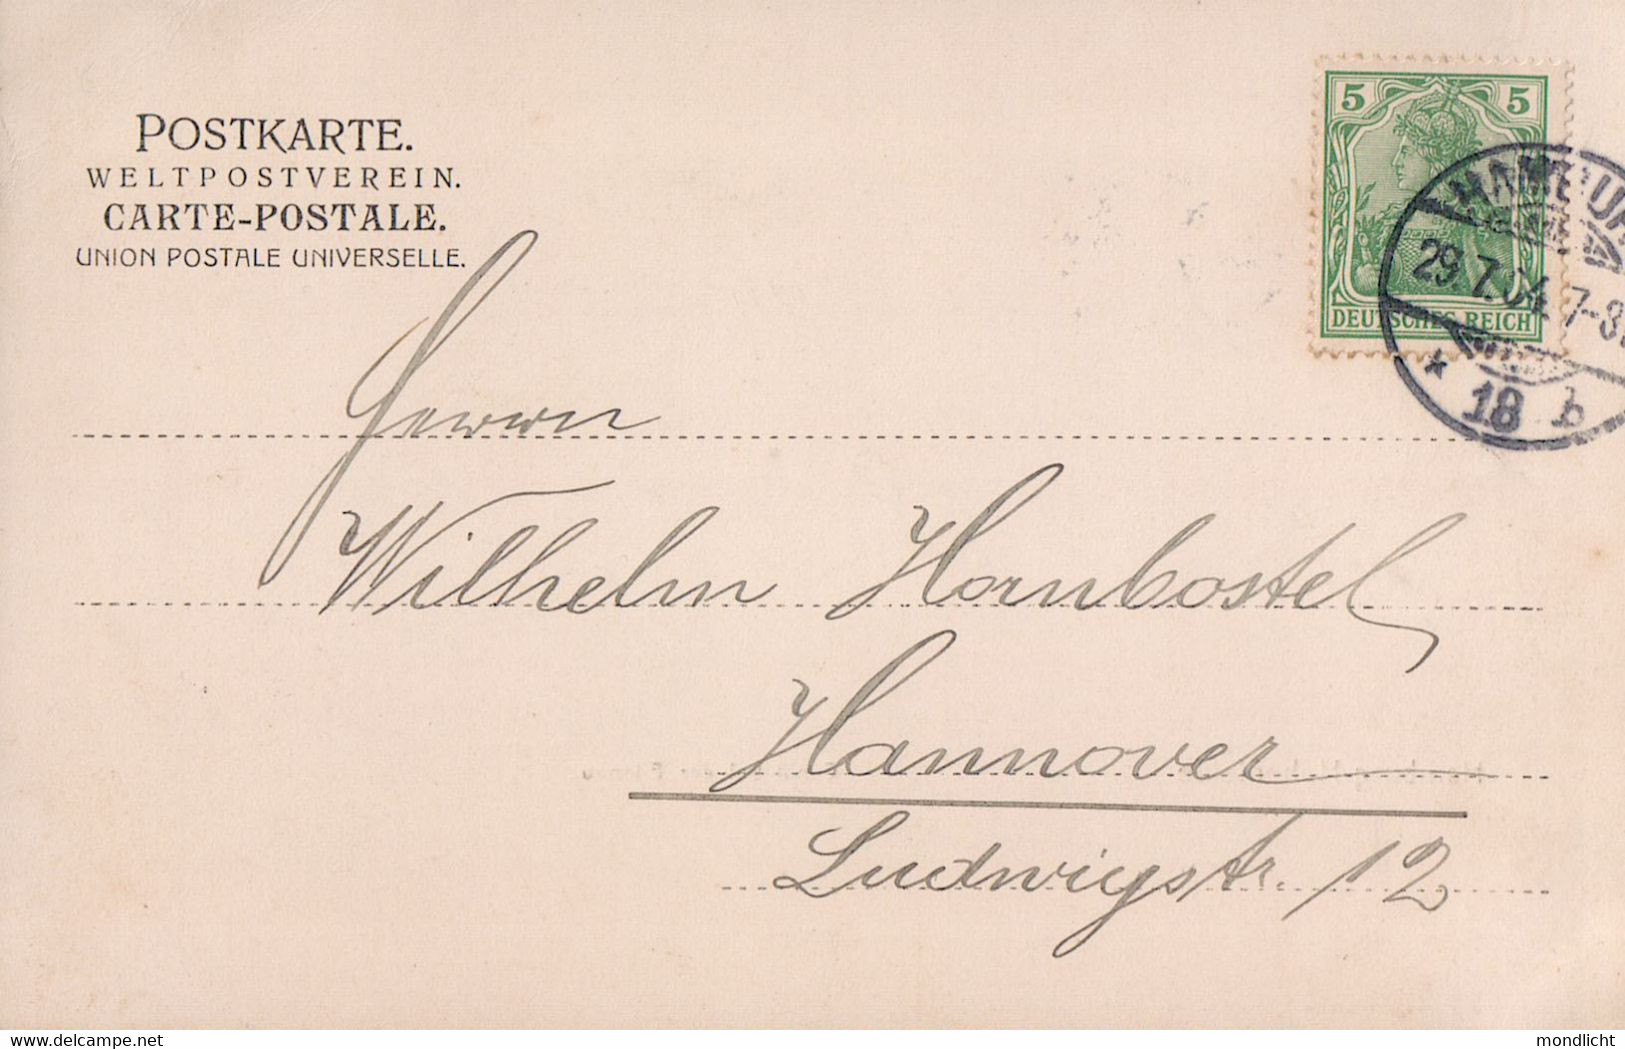 POSTKARTE.
WELTPOSTVEREIN.
CARTE-POSTALE.
UNION POSTALE UNIVERSELLE.
5 5
DEUTSCHES REICH
HAMBUR
29.7.04. 7-8
* 18 b
Herrn
Wilhelm Hornbostel
Hannover
Ludwigstr. 12
delcampe.net
mondlicht